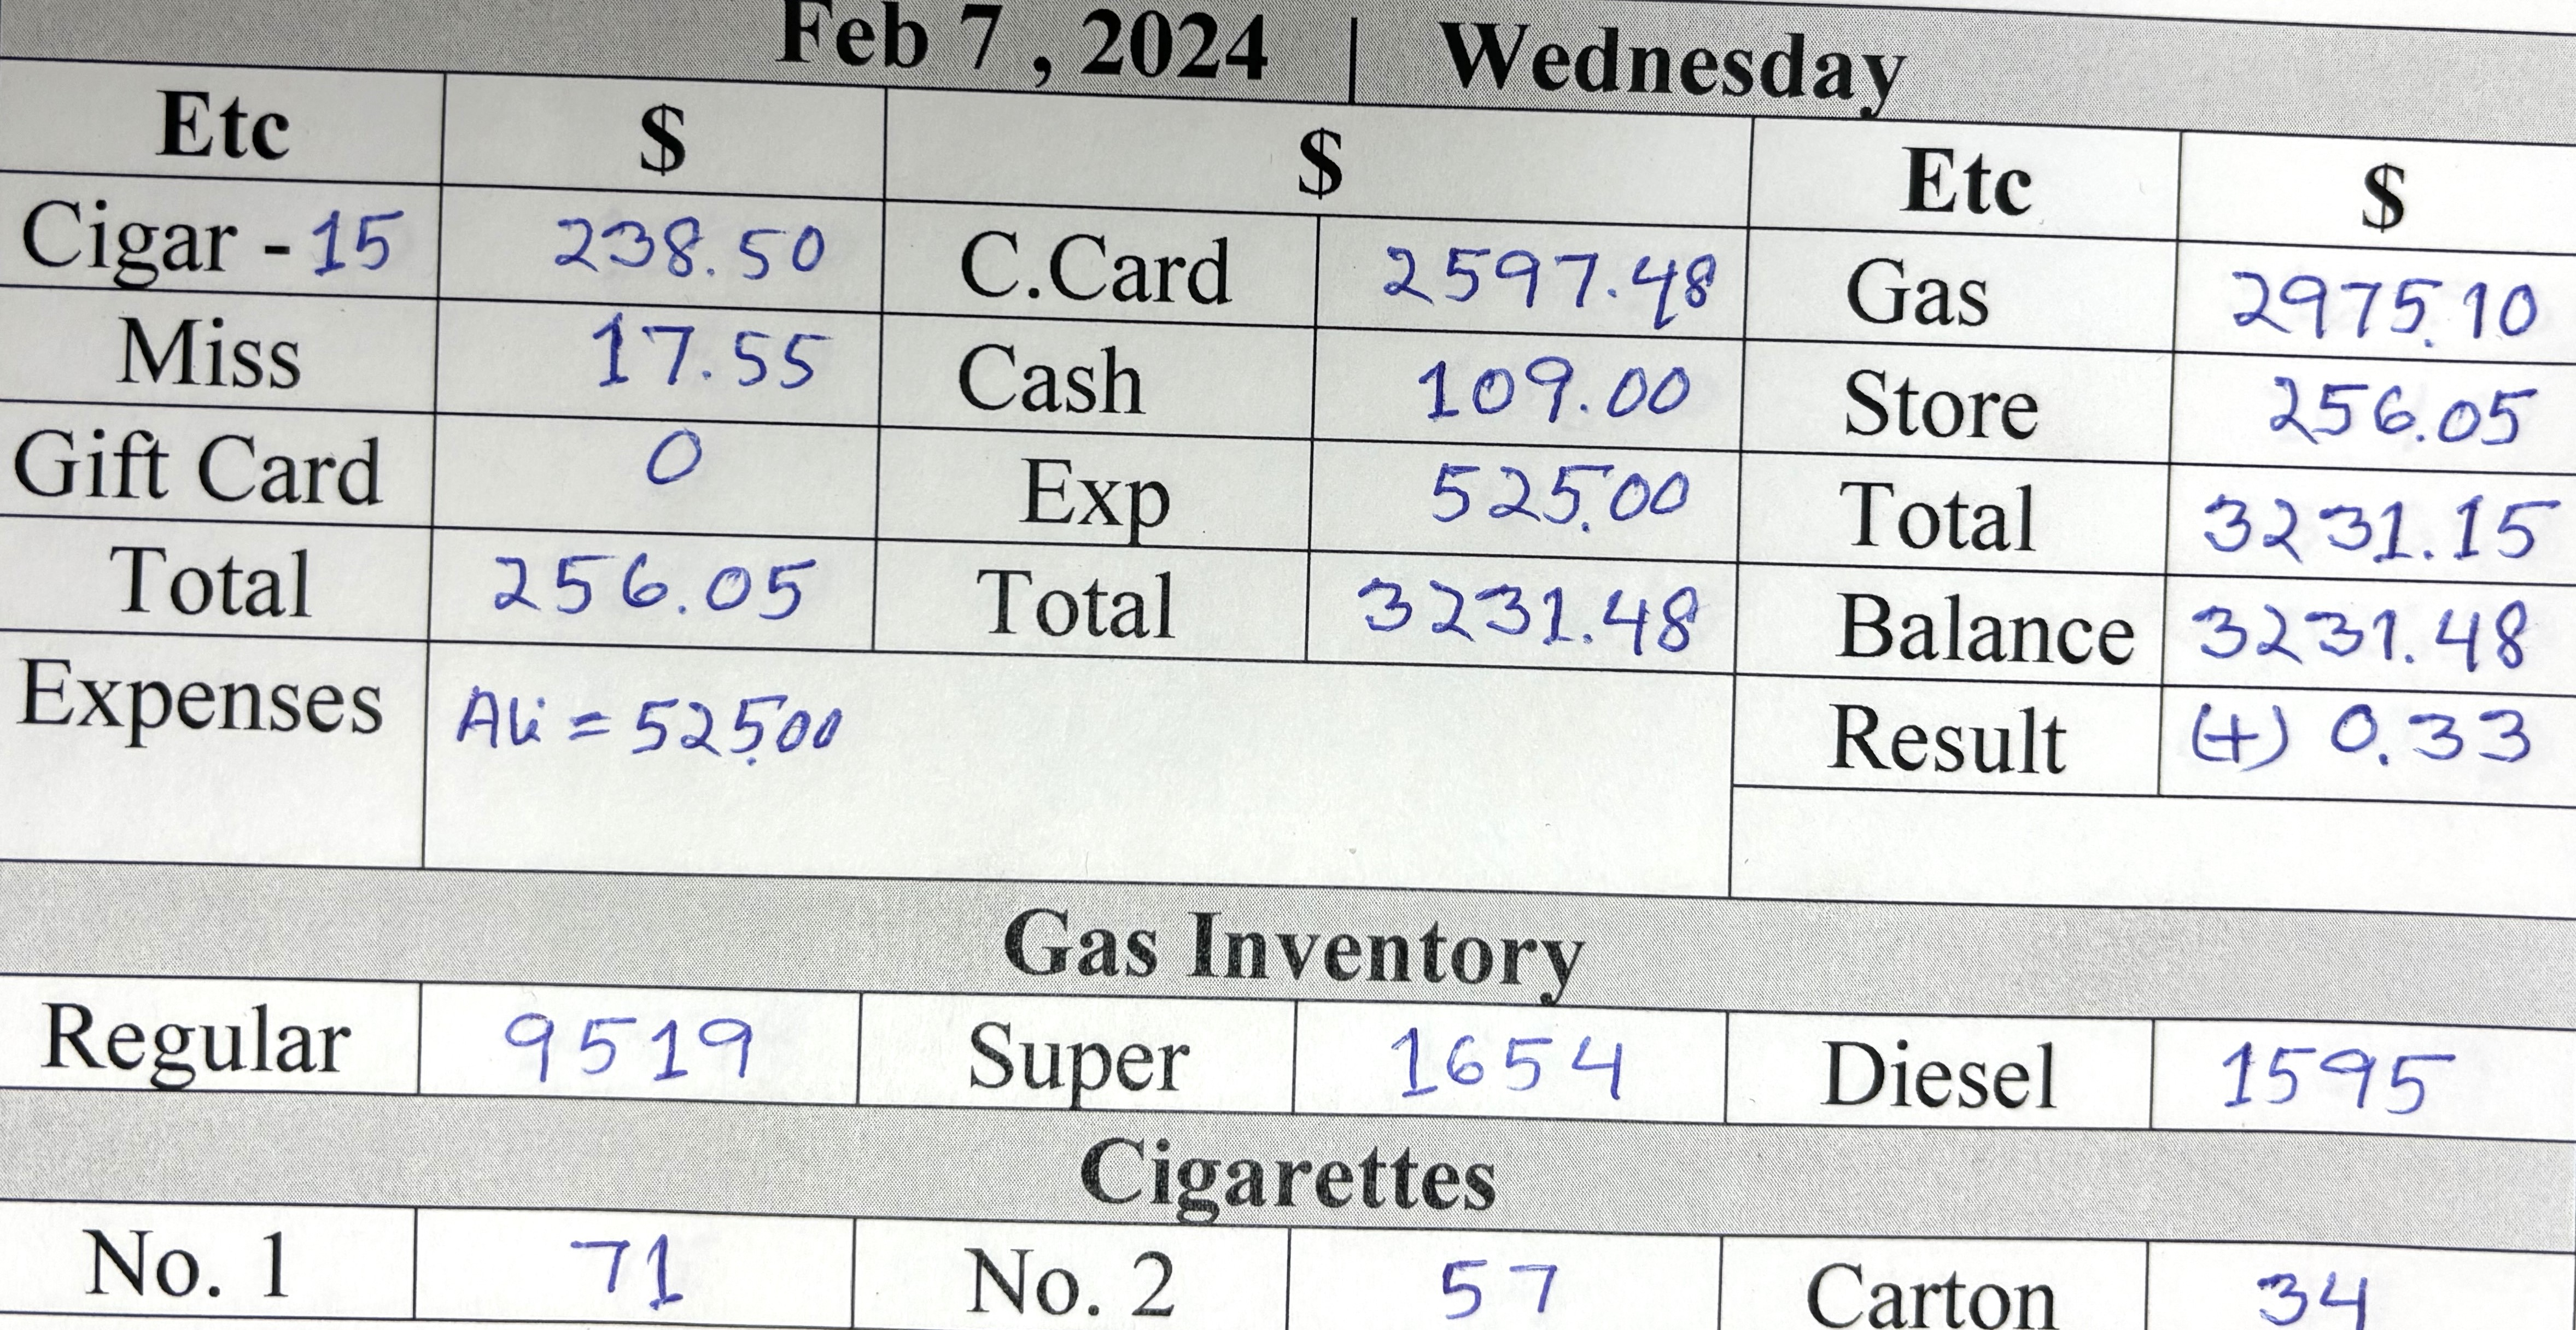 Feb 7 , 2024 | Wednesday
Etc $ $ Etc $
Cigar - 15 238.50 C.Card 2597.48 Gas 2975.10
Miss 17.55 Cash 109.00 Store 256.05
Gift Card 0 Exp 525.00 Total 3231.15
Total 256.05 Total 3231.48 Balance 3231.48
Expenses Ali = 525.00 Result (+) 0.33
Gas Inventory
Regular 9519 Super 1654 Diesel 1595
Cigarettes
No. 1 71 No. 2 57 Carton 34